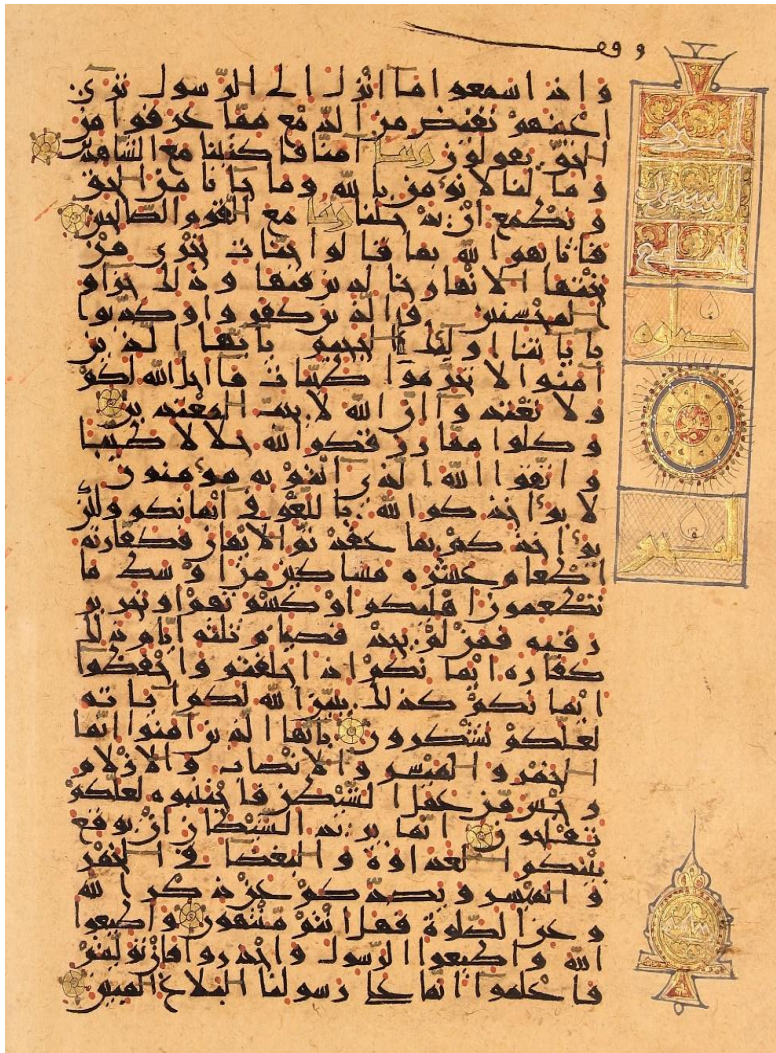 وقف
واذا سمعوا ما انزل الى الرسول ترى
اعينهم تفيض من الدمع مما عرفوا من
الحق يقولون ربنا آمنا فاكتبنا مع الشاهدين
وما لنا لا نؤمن بالله وما جاءنا من الحق
ونطمع ان يدخلنا ربنا مع القوم الصالحين
فاثابهم الله بما قالوا جنات تجري من
تحتها الانهار خالدين فيها وذلك جزاء
المحسنين والذين كفروا وكذبوا
بآياتنا اولئك الجحيم يايها الذين
آمنوا لا تحرموا طيبات ما احل الله لكم
ولا تعتدوا ان الله لا يحب المعتدين
وكلوا مما رزقكم الله حلالا طيبا
واتقوا الله الذي انتم به مؤمنون
لا يؤاخذكم الله باللغو في ايمانكم ولكن
يؤاخذكم بما عقدتم الايمان فكفارته
اطعام عشرة مساكين من اوسط ما
تطعمون اهليكم او كسوتهم او تحرير
رقبة فمن لم يجد فصيام ثلثة ايام ذلك
كفارة ايمانكم اذا حلفتم واحفظوا
ايمانكم كذلك يبين الله لكم آياته
لعلكم تشكرون يايها الذين آمنوا انما
الخمر والميسر والانصاب والازلام
رجس من عمل الشيطن فاجتنبوه لعلكم
تفلحون انما يريد الشيطان ان يوقع
بينكم العداوة والبغضاء في الخمر
والميسر ويصدكم عن ذكر الله
وعن الصلوة فهل انتم منتهون واطيعوا
الله واطيعوا الرسول واحذروا فان توليتم
فاعلموا انما على رسولنا البلاغ المبين